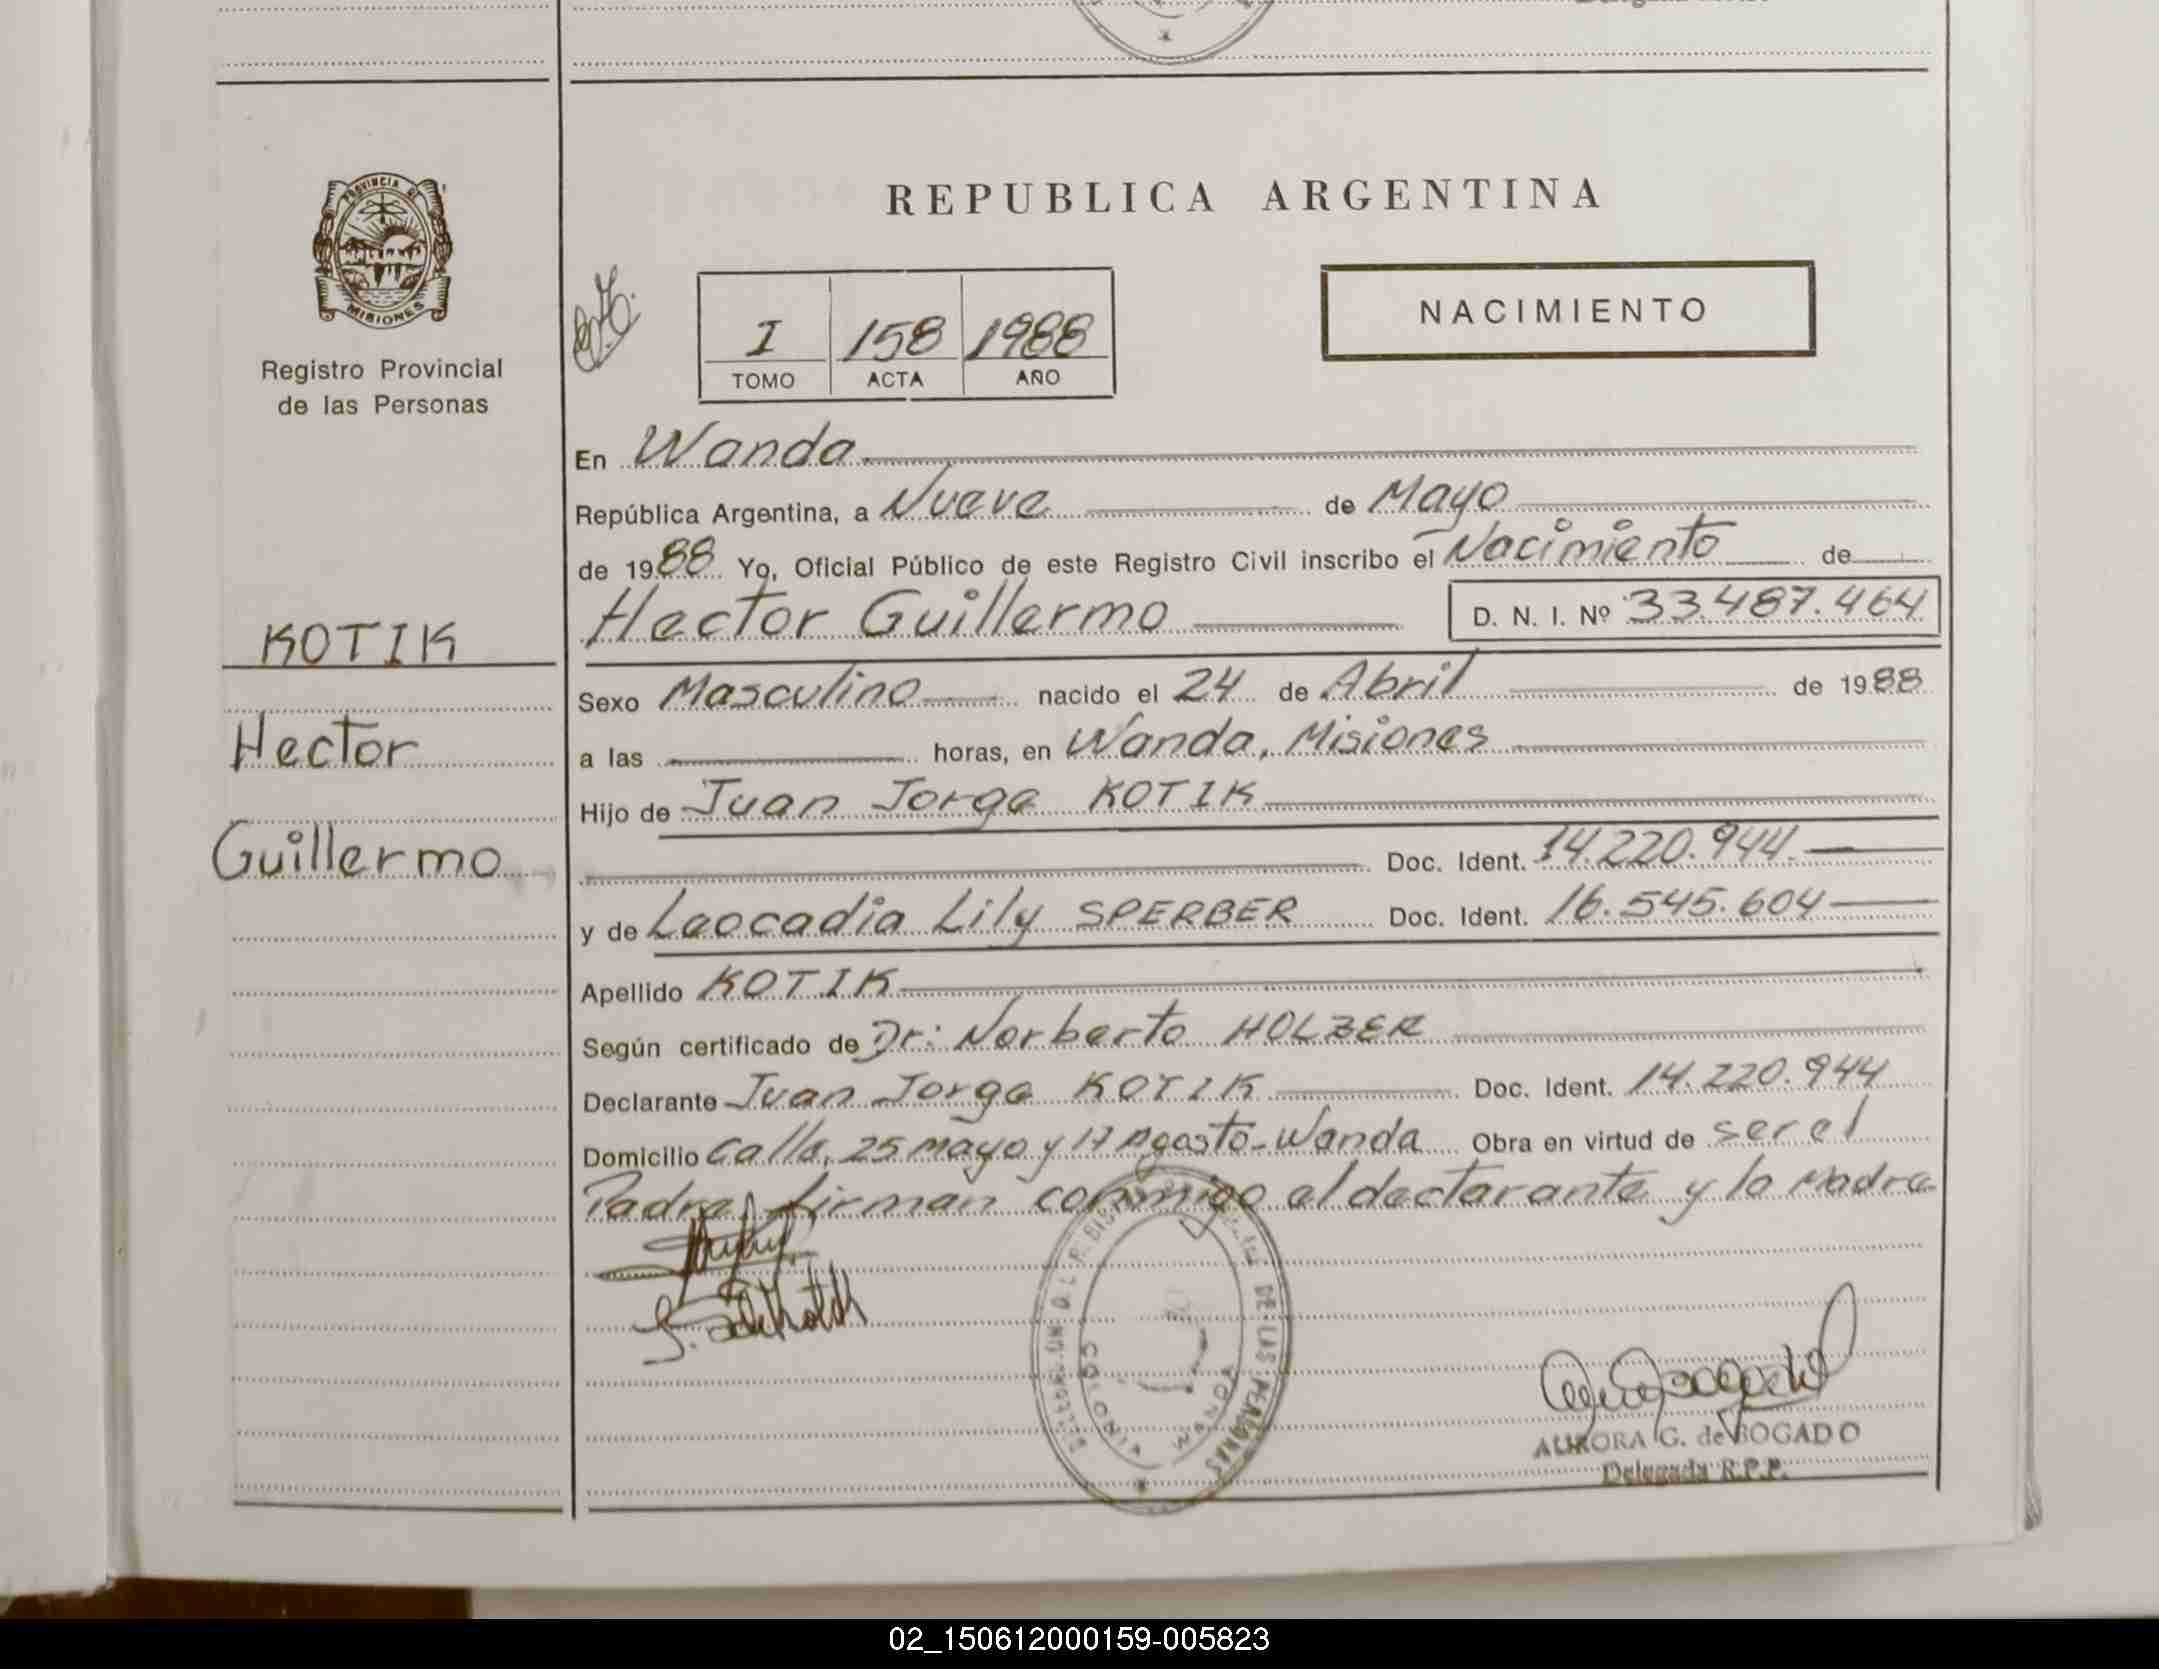 PROVINCIA D
MISIONES
Registro Provincial
de las Personas
KOTIK
Hector
Guillermo
REPUBLICA ARGENTINA
I 158 1988
TOMO ACTA AÑO
NACIMIENTO
En Wanda
República Argentina, a Nueve de Mayo
de 1988 Yo, Oficial Público de este Registro Civil inscribo el Nacimiento de
Hector Guillermo D. N. I. Nº 33.487.464
Sexo Masculino nacido el 24 de Abril de 1988
a las horas, en Wanda, Misiones
Hijo de Juan Jorge KOTIK
Doc. Ident. 14.220.944.
y de Leocadia Lily SPERBER Doc. Ident. 16.545.604
Apellido KOTIK
Según certificado de Dr: Norberto HOLZER
Declarante Juan Jorge KOTIK Doc. Ident. 14.220.944
Domicilio Calle, 25 mayo y 17 Agosto-Wanda Obra en virtud de ser el
Padre, firman conmigo el declarante y la Madre
DE LAS PERSONAS
WANDA
AURORA G. de BOGADO
Delegada R.P.P.
02_150612000159-005823